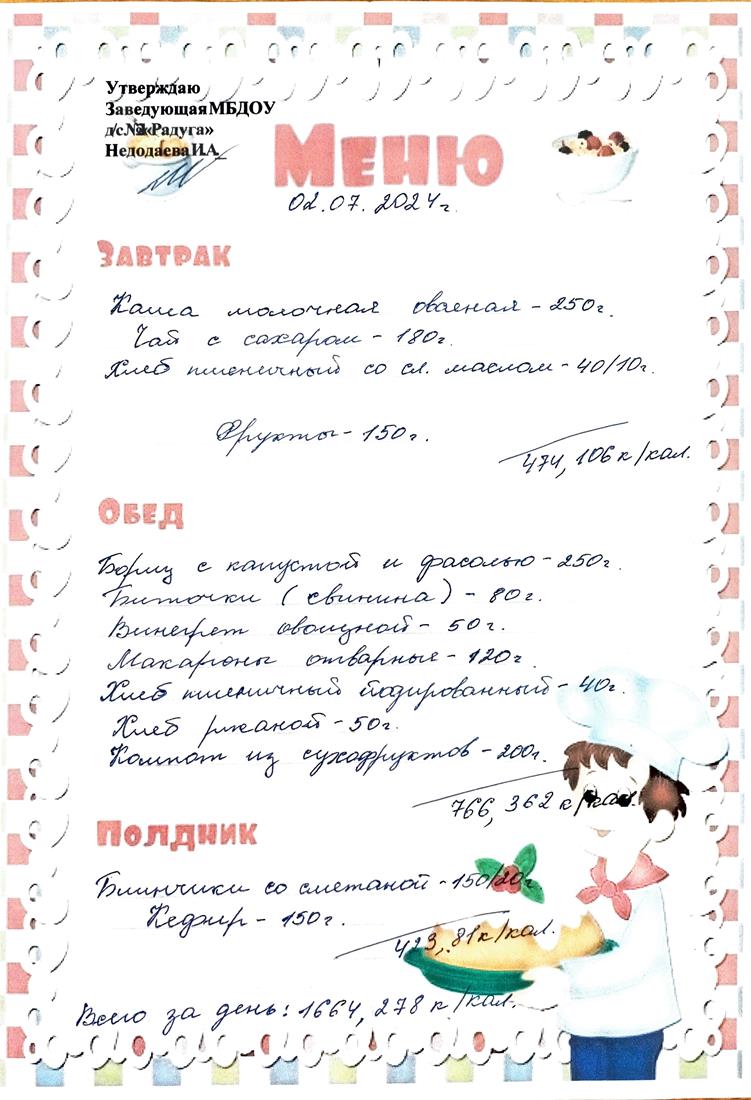 Утверждаю
Заведующая МБДОУ
д/с№2«Радуга»
Недодаева И.А.
Меню
02.07.2024г.
Завтрак
Каша молочная овсяная - 250г.
Чай с сахаром - 180г.
Хлеб пшеничный со сл. маслом - 40/10г.
Фрукты - 150г.
474, 106 к/кал.
Обед
Борщ с капустой и фасолью - 250г.
Биточки (свинина) - 80г.
Винегрет овощной - 50г.
Макароны отварные - 120г.
Хлеб пшеничный йодированный - 40г.
Хлеб ржаной - 50г.
Компот из сухофруктов - 200г.
766, 362 к/кал.
Полдник
Блинчики со сметаной - 150/20г.
Кефир - 150г.
423, 81 к/кал.
Всего за день: 1664, 278 к/кал.